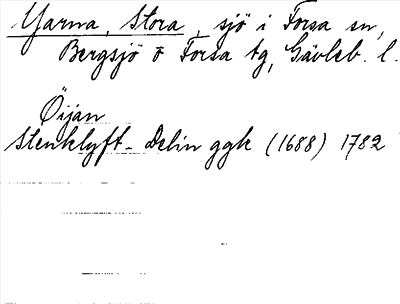 Yarna, Stora, sjö i Forsa sn,
Bergsjö o Forsa tg, Gävleb. l.
Öijan
Stenklyft - Delin ggk (1688) 1782